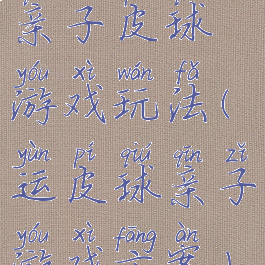 亲子皮球
yóu xì wán fǎ
游戏玩法(
yùn pí qiú qīn zǐ
运皮球亲子
yóu xì fāng àn
游戏方案)